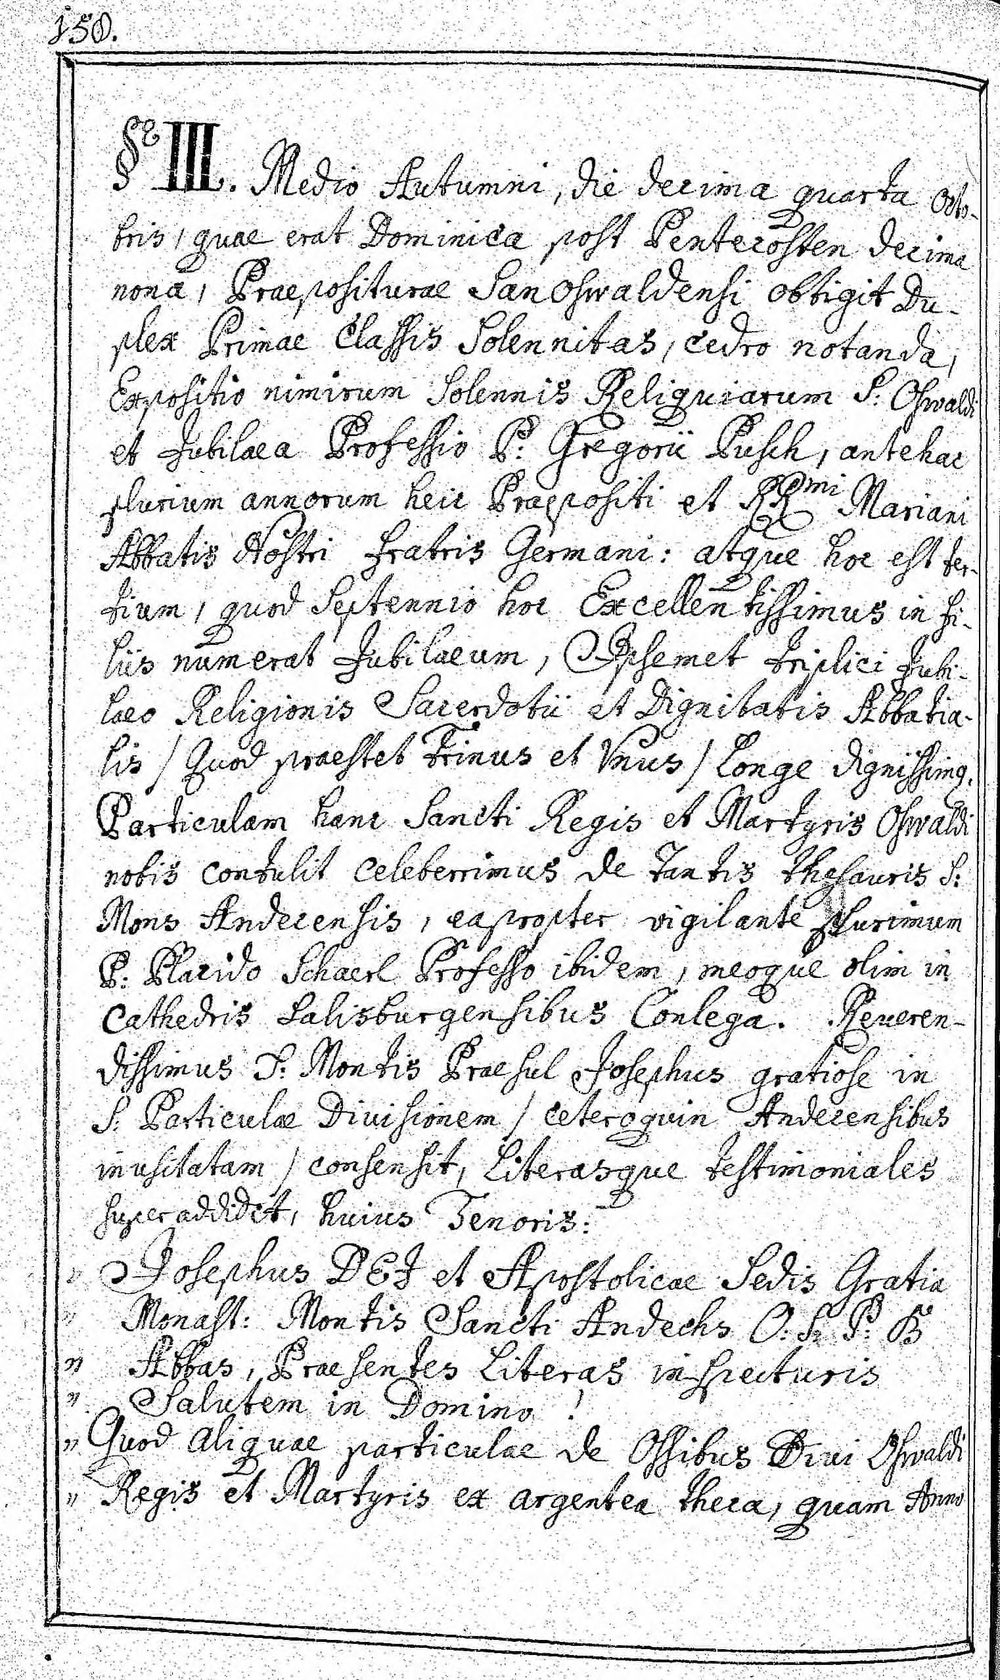 150.
§e III. Medio Autumni, die decima quarta Octo-
bris, quae erat Dominica post Pentecosten decima
nona, Praepositurae SanOswaldensi obtigit Du-
plex Primae Classis Solennitas, cedro notanda,
Expositio nimirum Solennis Reliquiarum S: Oswaldi
et Jubilaea Professio P: Gregorii Pusch, antehac
plurium annorum heic Praepositi et RRmi Mariani
Abbatis Nostri Fratris Germani: atque hoc est ter-
tium, quod Septennio hoc Excellentissimus in fi-
liis numerat Jubilaeum, Ipsemet triplici Jubi-
laeo Religionis Sacerdotii et Dignitatis Abbatia-
lis / Quod praestet Trinus et Vnus / longe dignissimq.
Particulam hanc Sancti Regis et Martyris Oswaldi
nobis contulit celeberrimus de tantis thesauris S:
Mons Andecensis, eapropter vigilante plurimum
P: Placido Schaerl Professo ibidem, meoque olim in
Cathedris Salisburgensibus Conlega. Reveren-
dissimus S: Montis Praesul Josephus gratiose in
S: Particulae Divisionem / ceteroquin Andecensibus
inusitatam / consensit, Literasque testimoniales
superaddidit, huius Tenoris:
„ Josephus DEJ et Apostolicae Sedis Gratia
„ Monast: Montis Sancti Andechs O: S: P: B
„ Abbas, Praesentes Literas inspecturis
„ Salutem in Domino !
„ Quod aliquae particulae de Ossibus Divi Oswaldi
„ Regis et Martyris ex argentea theca, quam Anno